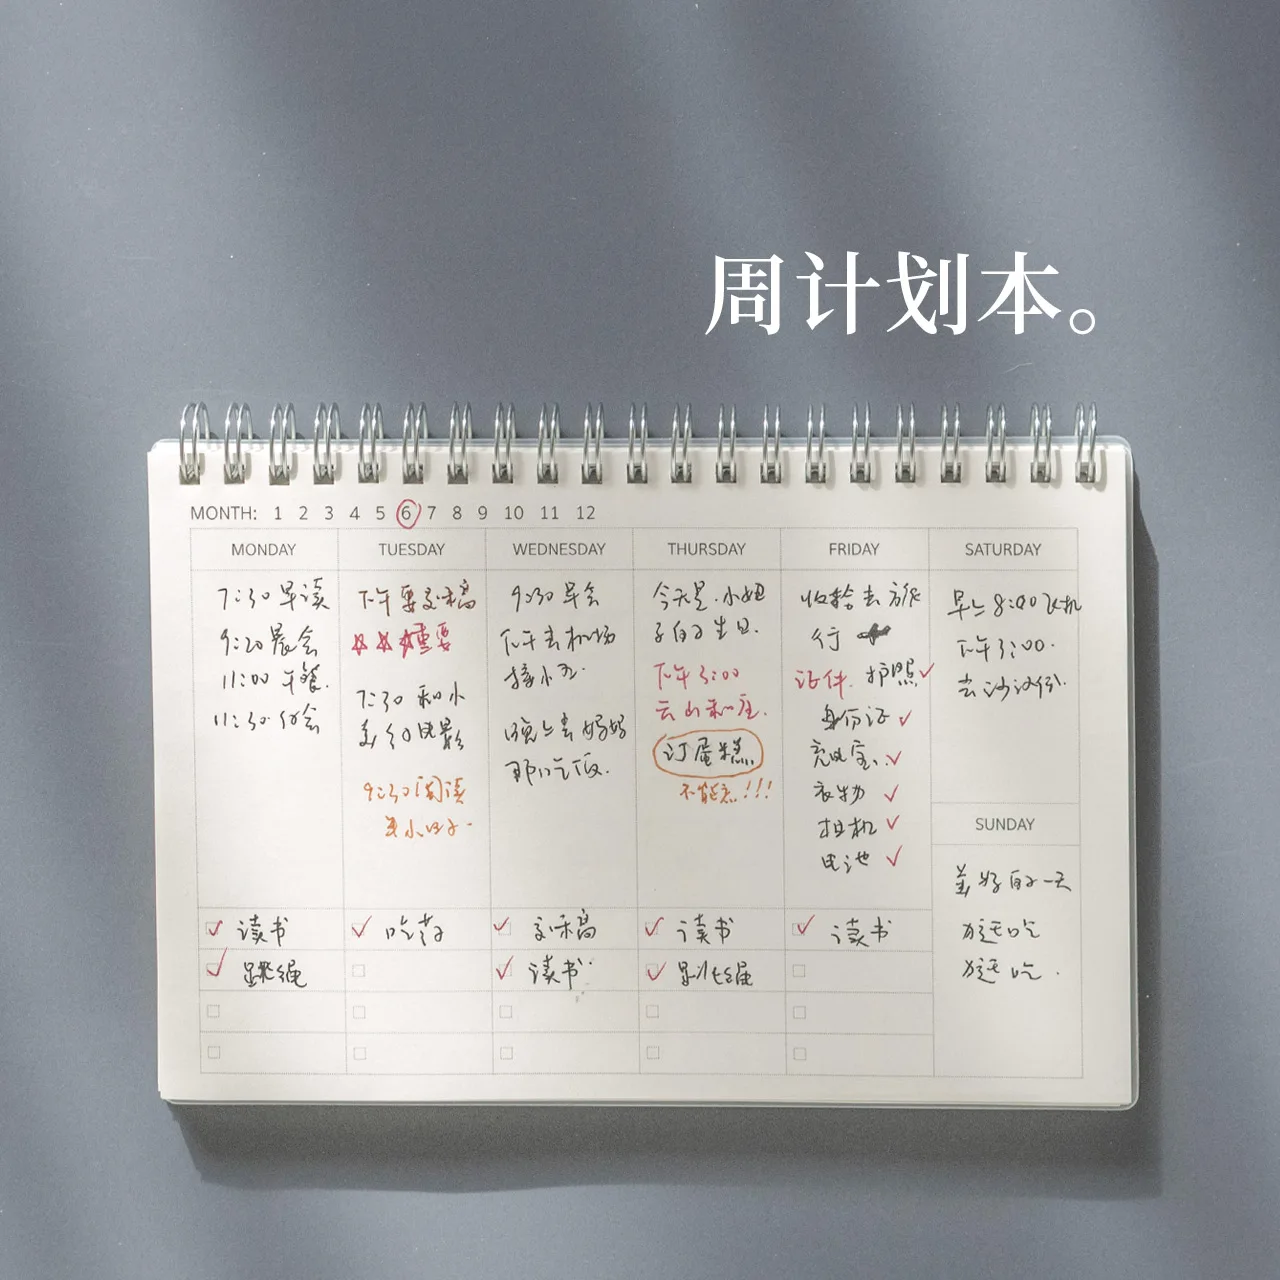 周计划本。
MONTH: 1 2 3 4 5 6 7 8 9 10 11 12
MONDAY
7:30 早读
9:20 晨会
11:00 午餐.
11:30 例会
读书
跳绳
TUESDAY
下午要交稿
重要
7:30 和小
美约电影
9:30 阅读
WEDNESDAY
9:30 早会
下午去机场
接小
晚上去妈妈
那吃饭.
交稿
读书
吃药
THURSDAY
今天是小妞
子的生日.
下午3:00
云山和庄.
订蛋糕
不能忘!!!
读书
跳绳
FRIDAY
收拾去旅
行
证件. 护照
身份证
充电宝.
衣物
相机
电池
读书
SATURDAY
早上8:00飞机
下午3:00.
去
SUNDAY
美好的一天
吃
吃.